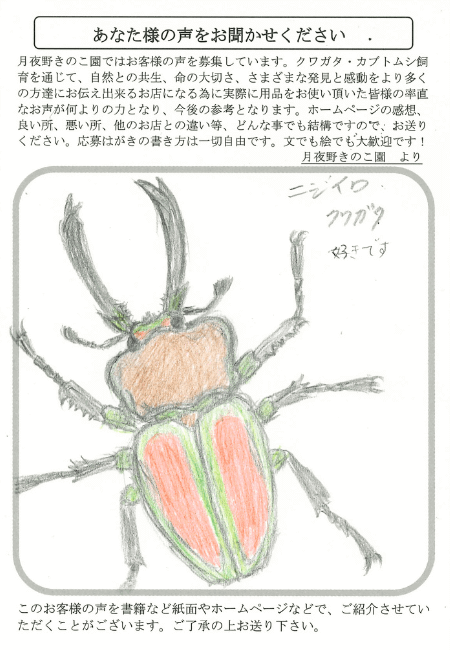 あなた様の声をお聞かせください　.
月夜野きのこ園ではお客様の声を募集しています。クワガタ・カブトムシ飼
育を通じて、自然との共生、命の大切さ、さまざまな発見と感動をより多く
の方達にお伝え出来るお店になる為に実際に用品をお使い頂いた皆様の率直
なお声が何よりの力となり、今後の参考となります。ホームページの感想、
良い所、悪い所、他のお店との違い等、どんな事でも結構ですので、お送り
ください。応募はがきの書き方は一切自由です。文でも絵でも大歓迎です！
月夜野きのこ園　より
ニジイロ
クワガタ
好きです
このお客様の声を書籍など紙面やホームページなどで、ご紹介させてい
ただくことがございます。ご了承の上お送り下さい。